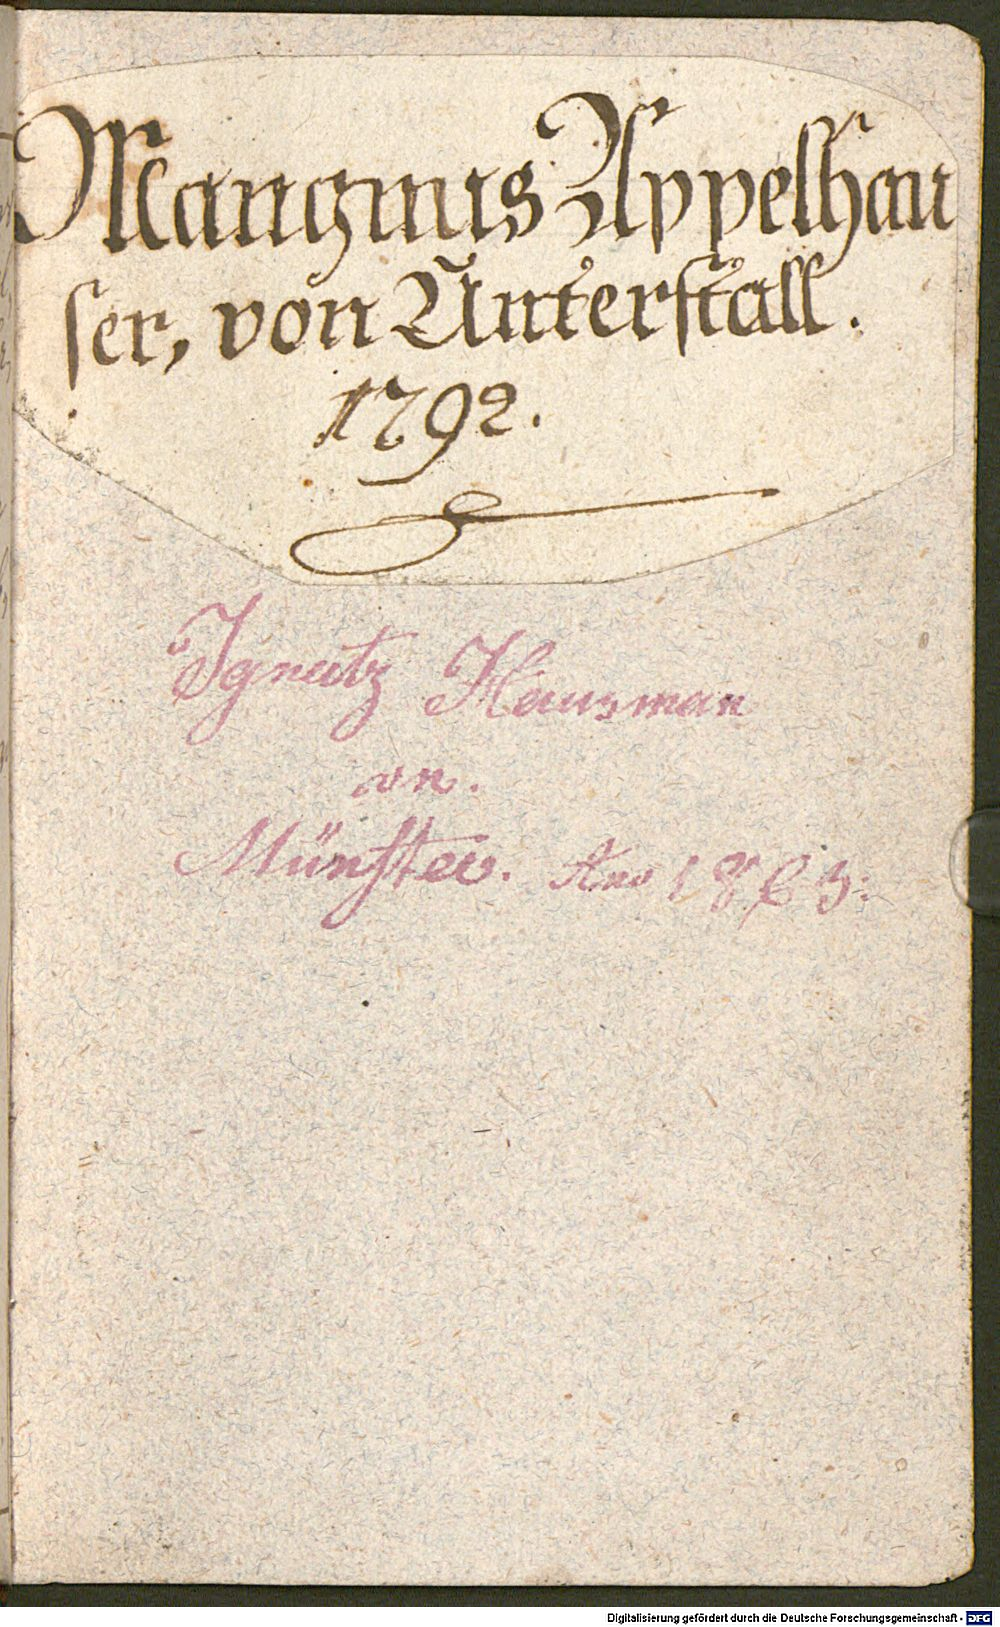 Mangnus Appelhau
ser, von Unterstall.
1792.
Ignatz Hausman
on.
Münster. Ano 1863:
Digitalisierung gefördert durch die Deutsche Forschungsgemeinschaft - DFG